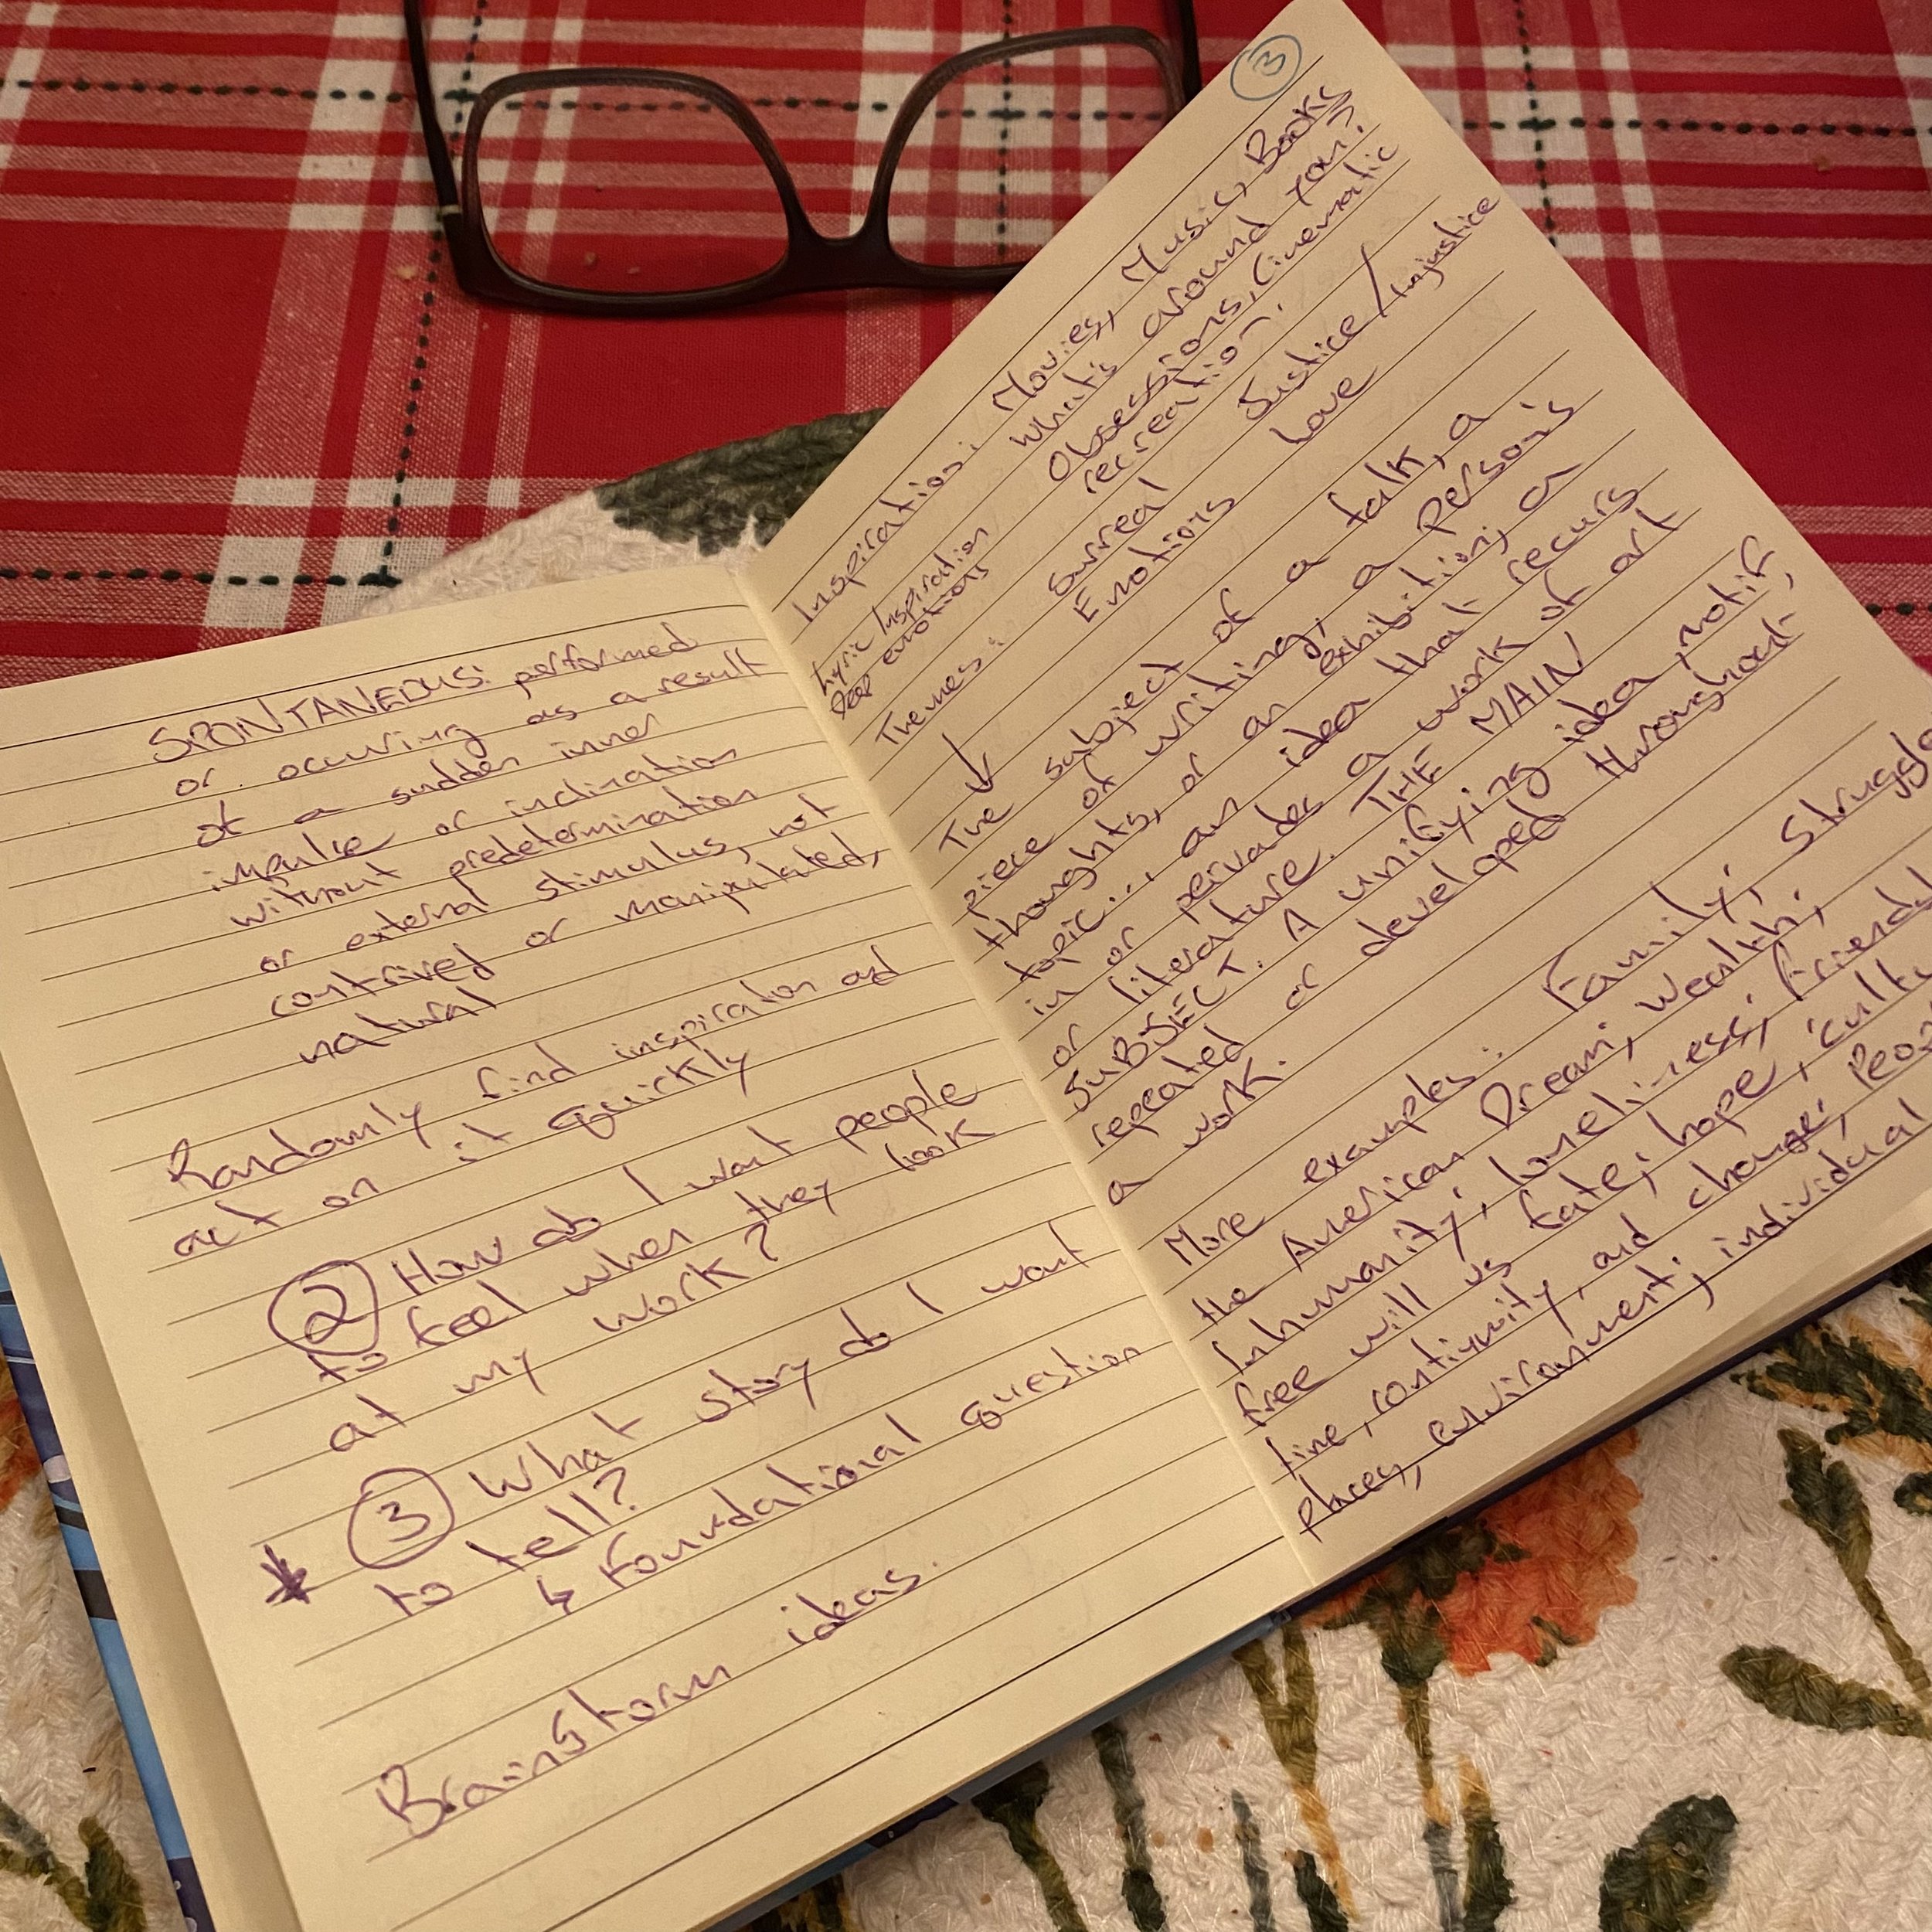 SPONTANEOUS: performed
or occuring as a result
of a sudden inner
impulse or inclination
without predetermination
or external stimulus, not
contrived or manipulated,
natural
Randomly find inspiration and
act on it quickly
② How do I want people
to feel when they look
at my work?
③ What story do I want
to tell?
↳ Foundational question
BrainStorm ideas.
③
Inspiration: Movies, Music, Books
what's around you?
Obsessions, Cinematic
recreation.
Lyric Inspiration
deep emotions
Themes: Surreal Justice/Injustice
Emotions Love
↓
The subject of a talk, a
piece of writing, a person's
thoughts, or an exhibition; a
topic... an idea that recurs
in or pervades a work of art
or literature. THE MAIN
SUBJECT. A unifying idea, motif,
repeated or developed throughout
a work.
More examples: Family; Struggle
the American Dream; wealth;
Inhumanity; loneliness; friendsh
free will vs fate; hope; cultu
time, continuity, and change; Peop
places, environment; individual